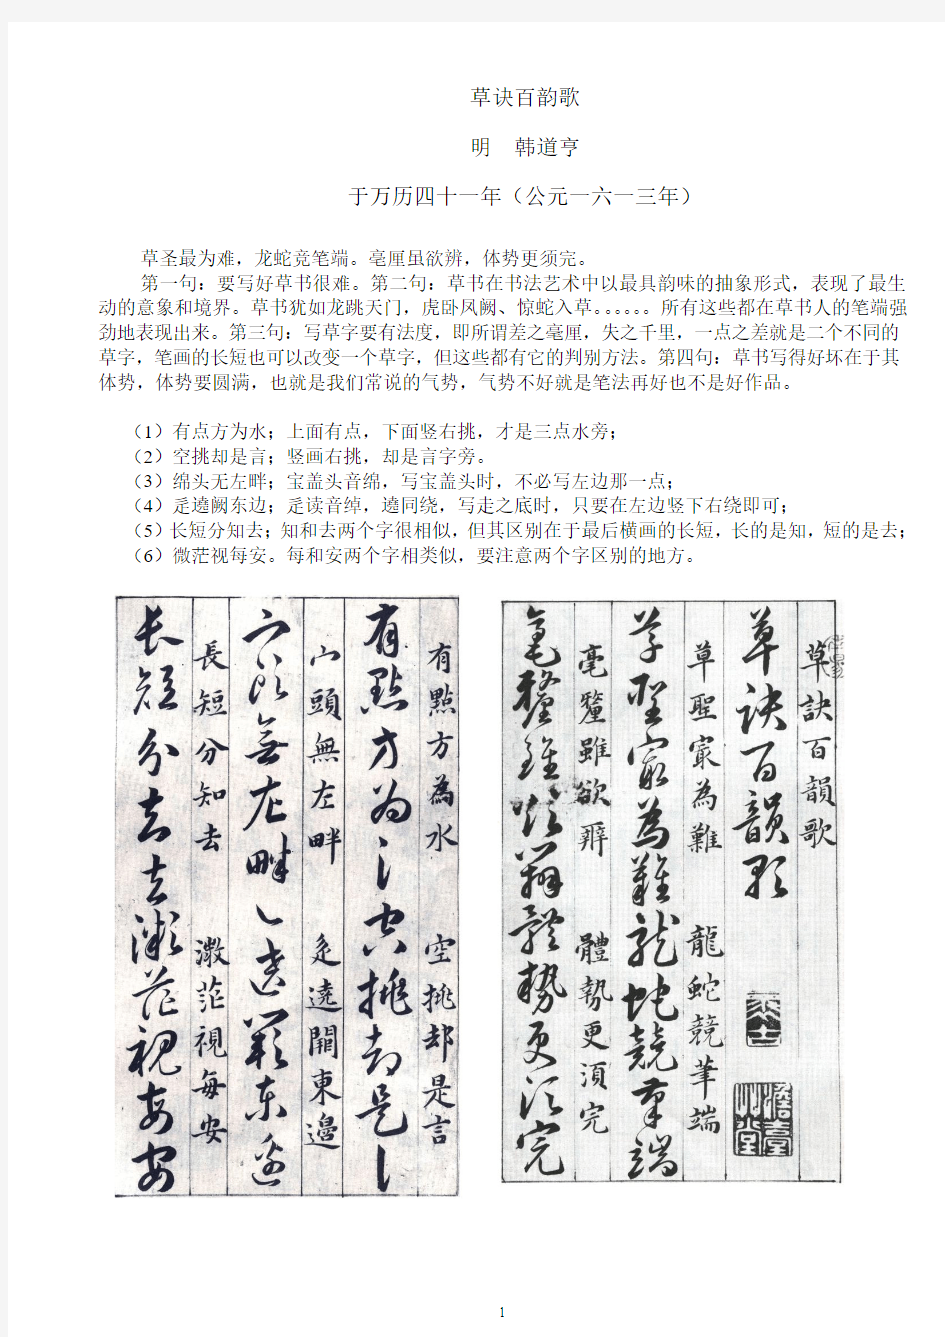 草诀百韵歌
明　韩道亨
于万历四十一年（公元一六一三年）
草圣最为难，龙蛇竞笔端。毫厘虽欲辨，体势更须完。
第一句：要写好草书很难。第二句：草书在书法艺术中以最具韵味的抽象形式，表现了最生
动的意象和境界。草书犹如龙跳天门，虎卧凤阙、惊蛇入草。。。。。。所有这些都在草书人的笔端强
劲地表现出来。第三句：写草字要有法度，即所谓差之毫厘，失之千里，一点之差就是二个不同的
草字，笔画的长短也可以改变一个草字，但这些都有它的判别方法。第四句：草书写得好坏在于其
体势，体势要圆满，也就是我们常说的气势，气势不好就是笔法再好也不是好作品。
（1）有点方为水；上面有点，下面竖右挑，才是三点水旁；
（2）空挑却是言；竖画右挑，却是言字旁。
（3）绵头无左畔；宝盖头音绵，写宝盖头时，不必写左边那一点；
（4）辵遶阙东边；辵读音绰，遶同绕，写走之底时，只要在左边竖下右绕即可；
（5）长短分知去；知和去两个字很相似，但其区别在于最后横画的长短，长的是知，短的是去；
（6）微茫视每安。每和安两个字相类似，要注意两个字区别的地方。
草訣百韻歌
草訣百韻歌
草聖冣為難　龍蛇競筆端
草聖冣為難龍蛇競筆端
毫釐雖欲辨　體勢更須完
毫釐雖欲辨體勢更須完
有點方為水　空挑却是言
有點方為氵空挑却是讠
宀頭無左畔　辵遶闕東邊
宀頭無左畔辶遶闕東邊
長短分知去　微茫視每安
長短分知去微茫視每安
1